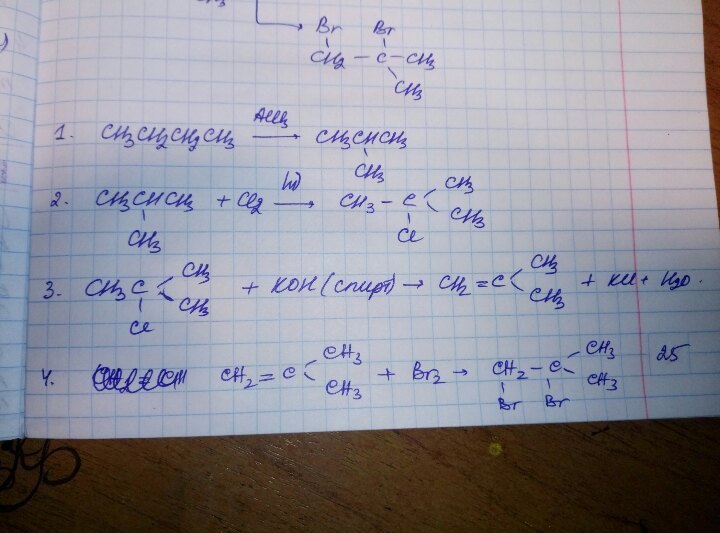 Br Br
CH2 - C - CH3
CH3
1. CH3CH2CH2CH3 AlCl3 → CH3CHCH3
CH3
2. CH3CHCH3 + Cl2 hν → CH3 - C CH3
CH3 CH3
Cl
3. CH3C CH3 + KOH (спирт) → CH2 = C CH3 + KCl + H2O.
CH3 CH3
Cl
4. CH2 = C CH3 + Br2 → CH2 - C CH3 25
CH3 CH3
Br Br